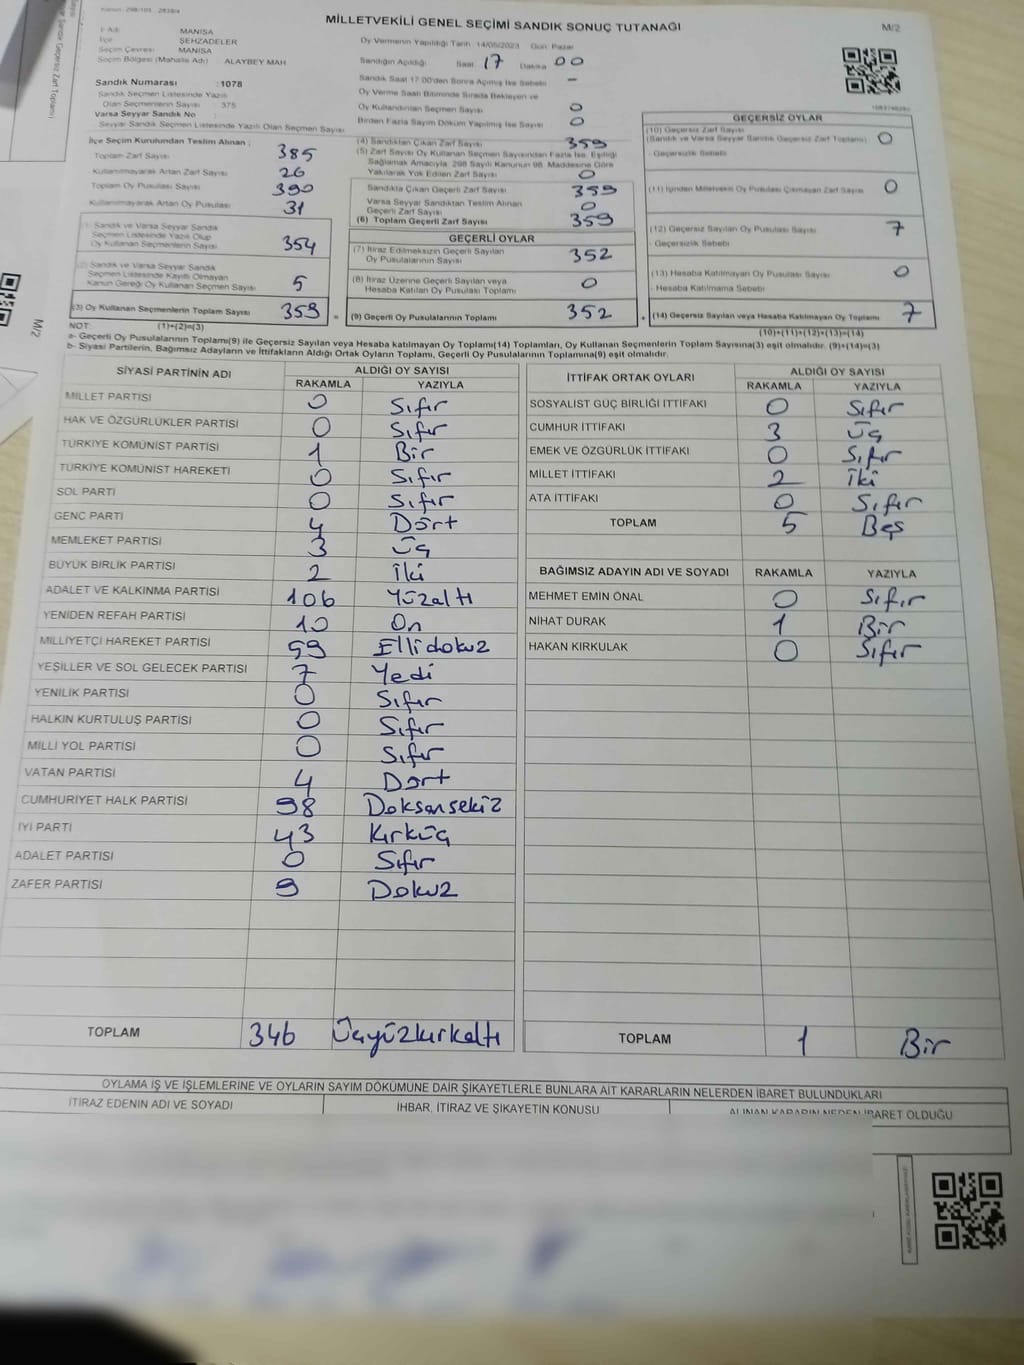 MİLLETVEKİLİ GENEL SEÇİMİ SANDIK SONUÇ TUTANAĞI
M/2
MANİSA
İlçe : ŞEHZADELER
Seçim Çevresi : MANİSA
Seçim Bölgesi (Mahalle Adı) : ALAYBEY MAH
Sandık Numarası : 1078
Sandık Seçmen Listesinde Yazılı
Olan Seçmenlerin Sayısı : 375
Varsa Seyyar Sandık No :
Seyyar Sandık Seçmen Listesinde Yazılı Olan Seçmen Sayısı :
Oy Vermenin Yapıldığı Tarih 14/05/2023 Gün: Pazar
Sandığın Açıldığı Saat 17 Dakika 00
Sandık Saat 17.00'den Sonra Açılmış İse Sebebi –
Oy Verme Saati Bitiminde Sırada Bekleyen ve
Oy Kullandırılan Seçmen Sayısı 0
Birden Fazla Sayım Döküm Yapılmış İse Sayısı 0
İlçe Seçim Kurulundan Teslim Alınan :
Toplam Zarf Sayısı 385
Kullanılmayarak Artan Zarf Sayısı 26
Toplam Oy Pusulası Sayısı 390
Kullanılmayarak Artan Oy Pusulası 31
(1) Sandık ve Varsa Seyyar Sandık
Seçmen Listesinde Yazılı Olup
Oy Kullanan Seçmenlerin Sayısı 354
(2) Sandık ve Varsa Seyyar Sandık
Seçmen Listesinde Kayıtlı Olmayan
Kanun Gereği Oy Kullanan Seçmen Sayısı 5
(3) Oy Kullanan Seçmenlerin Toplam Sayısı 359
(4) Sandıktan Çıkan Zarf Sayısı 359
(5) Zarf Sayısı Oy Kullanan Seçmen Sayısından Fazla İse, Eşitliği
Sağlamak Amacıyla, 298 Sayılı Kanunun 98. Maddesine Göre
Yakılarak Yok Edilen Zarf Sayısı 0
Sandıkta Çıkan Geçerli Zarf Sayısı 359
Varsa Seyyar Sandıktan Teslim Alınan
Geçerli Zarf Sayısı 0
(6) Toplam Geçerli Zarf Sayısı 359
GEÇERLİ OYLAR
(7) İtiraz Edilmeksizin Geçerli Sayılan
Oy Pusulalarının Sayısı 352
(8) İtiraz Üzerine Geçerli Sayılan veya
Hesaba Katılan Oy Pusulası Toplamı 0
= (9) Geçerli Oy Pusulalarının Toplamı 352
GEÇERSİZ OYLAR
(10) Geçersiz Zarf Sayısı 0
(Sandık ve Varsa Seyyar Sandık Geçersiz Zarf Toplamı)
- Geçersizlik Sebebi
(11) İçinden Milletvekili Oy Pusulası Çıkmayan Zarf Sayısı 0
(12) Geçersiz Sayılan Oy Pusulası Sayısı 7
- Geçersizlik Sebebi
(13) Hesaba Katılmayan Oy Pusulası Sayısı 0
- Hesaba Katılmama Sebebi
+ (14) Geçersiz Sayılan veya Hesaba Katılmayan Oy Toplamı 7
NOT: (1)+(2)=(3)
(10)+(11)+(12)+(13)=(14)
a- Geçerli Oy Pusulalarının Toplamı(9) ile Geçersiz Sayılan veya Hesaba katılmayan Oy Toplamı(14) Toplamları, Oy Kullanan Seçmenlerin Toplam Sayısına(3) eşit olmalıdır. (9)+(14)=(3)
b- Siyasi Partilerin, Bağımsız Adayların ve İttifakların Aldığı Ortak Oyların Toplamı, Geçerli Oy Pusulalarının Toplamına(9) eşit olmalıdır.
SİYASİ PARTİNİN ADI ALDIĞI OY SAYISI
RAKAMLA YAZIYLA
MİLLET PARTİSİ 0 Sıfır
HAK VE ÖZGÜRLÜKLER PARTİSİ 0 Sıfır
TÜRKİYE KOMÜNİST PARTİSİ 1 Bir
TÜRKİYE KOMÜNİST HAREKETİ 0 Sıfır
SOL PARTİ 0 Sıfır
GENÇ PARTİ 4 Dört
MEMLEKET PARTİSİ 3 Üç
BÜYÜK BİRLİK PARTİSİ 2 İki
ADALET VE KALKINMA PARTİSİ 106 Yüzaltı
YENİDEN REFAH PARTİSİ 10 On
MİLLİYETÇİ HAREKET PARTİSİ 59 Ellidokuz
YEŞİLLER VE SOL GELECEK PARTİSİ 7 Yedi
YENİLİK PARTİSİ 0 Sıfır
HALKIN KURTULUŞ PARTİSİ 0 Sıfır
MİLLİ YOL PARTİSİ 0 Sıfır
VATAN PARTİSİ 4 Dört
CUMHURİYET HALK PARTİSİ 98 Doksansekiz
İYİ PARTİ 43 Kırküç
ADALET PARTİSİ 0 Sıfır
ZAFER PARTİSİ 9 Dokuz
TOPLAM 346 Üçyüzkırkaltı
İTTİFAK ORTAK OYLARI ALDIĞI OY SAYISI
RAKAMLA YAZIYLA
SOSYALİST GÜÇ BİRLİĞİ İTTİFAKI 0 Sıfır
CUMHUR İTTİFAKI 3 Üç
EMEK VE ÖZGÜRLÜK İTTİFAKI 0 Sıfır
MİLLET İTTİFAKI 2 İki
ATA İTTİFAKI 0 Sıfır
TOPLAM 5 Beş
BAĞIMSIZ ADAYIN ADI VE SOYADI RAKAMLA YAZIYLA
MEHMET EMİN ÖNAL 0 Sıfır
NİHAT DURAK 1 Bir
HAKAN KIRKULAK 0 Sıfır
TOPLAM 1 Bir
OYLAMA İŞ VE İŞLEMLERİNE VE OYLARIN SAYIM DÖKÜMÜNE DAİR ŞİKAYETLERLE BUNLARA AİT KARARLARIN NELERDEN İBARET BULUNDUKLARI
İTİRAZ EDENİN ADI VE SOYADI İHBAR, İTİRAZ VE ŞİKAYETİN KONUSU ALINAN KARARIN NEDEN İBARET OLDUĞU
M/2